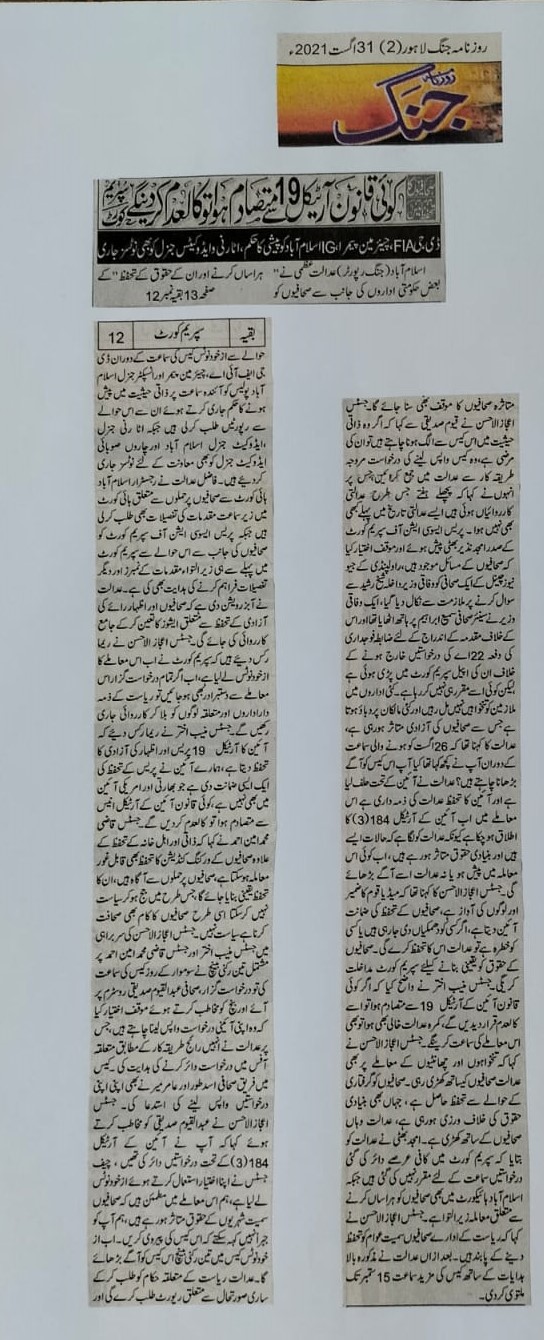 روزنامہ جنگ لاہور (2) 31 اگست 2021ء
روزنامہ
جنگ
کوئی قانون آرٹیکل 19 سے متصادم ہوا تو کالعدم کر دینگے سپریم کورٹ
ڈی جی FIA، چیئرمین پیمرا، IG اسلام آباد کو پیشی کا حکم، اٹارنی و ایڈووکیٹس جنرل کو بھی نوٹسز جاری
اسلام آباد (جنگ رپورٹر) عدالت عظمیٰ نے "ہراساں کرنے اور ان کے حقوق کے تحفظ" کے
بعض حکومتی اداروں کی جانب سے صحافیوں کو صفحہ 13 بقیہ نمبر 12
بقیہ سپریم کورٹ 12
حوالے سے ازخود نوٹس کیس کی سماعت کے دوران ڈی
جی ایف آئی اے، چیئرمین پیمرا اور انسپکٹر جنرل اسلام
آباد پولیس کو آئندہ سماعت پر ذاتی حیثیت میں پیش
ہونے کا حکم جاری کرتے ہوئے ان سے اس حوالے
سے رپورٹیں طلب کر لی ہیں جبکہ اٹارنی جنرل
، ایڈووکیٹ جنرل اسلام آباد اور چاروں صوبائی
ایڈووکیٹ جنرل کو بھی معاونت کے لئے نوٹسز جاری
کر دیئے ہیں۔ فاضل عدالت نے رجسٹرار اسلام آباد
ہائی کورٹ سے صحافیوں پر حملوں سے متعلق ہائی کورٹ
میں زیر سماعت مقدمات کی تفصیلات بھی طلب کر لی
ہیں جبکہ پریس ایسوسی ایشن آف سپریم کورٹ کو
صحافیوں کی جانب سے اس حوالے سے سپریم کورٹ
میں پہلے سے ہی زیر التواء مقدمات کے نمبرز اور دیگر
تفصیلات فراہم کرنے کی ہدایت بھی کی ہے۔ عدالت
نے آبزرویشن دی ہے کہ صحافیوں اور اظہار رائے کی
آزادی کے تحفظ سے متعلق ایشوز کا تعین کر کے جامع
کارروائی کی جائے گی۔ جسٹس اعجاز الاحسن نے ریما
رکس دیئے ہیں کہ سپریم کورٹ نے اب اس معاملے کا
ازخود نوٹس لے لیا ہے، اب اگر تمام درخواست گزار اس
معاملے سے دستبردار بھی ہو جائیں تو ریاست کے ذمہ
دار اداروں اور متعلقہ لوگوں کو بلا کر کارروائی جاری
رکھیں گے۔ جسٹس منیب اختر نے ریمارکس دیئے کہ
آئین کا آرٹیکل 19 پریس اور اظہار کی آزادی کا
تحفظ دیتا ہے، ہمارے آئین نے پریس کے تحفظ کی
ایک ایسی ضمانت دی ہے جو بھارتی اور امریکی آئین
میں بھی نہیں ہے، کوئی قانون آئین کے آرٹیکل انیس
سے متصادم ہوا تو کالعدم کر دیں گے۔ جسٹس قاضی
محمد امین احمد نے کہا کہ ذاتی اور اہل خانہ کے تحفظ کے
علاوہ صحافیوں کے ورکنگ کنڈیشن کا تحفظ بھی قابل غور
معاملہ ہوسکتا ہے، صحافیوں پر حملوں سے آگاہ ہیں، ان کا
تحفظ یقینی بنایا جائے گا جس طرح میں جج ہو کر سیاست
نہیں کر سکتا اسی طرح صحافیوں کا کام بھی صحافت
کرنا ہے سیاست نہیں۔ جسٹس اعجاز الاحسن کی سربراہی
میں جسٹس منیب اختر اور جسٹس قاضی محمد امین احمد پر
مشتمل تین رکنی بنچ نے سوموار کے روز کیس کی سماعت
کی تو درخواست گزار، صحافی عبدالقیوم صدیقی روسٹرم پر
آئے اور بنچ کو مخاطب کرتے ہوئے موقف اختیار کیا
کہ وہ اپنی آئینی درخواست واپس لینا چاہتے ہیں، جس
پر عدالت نے انہیں رائج طریقہ کار کے مطابق متعلقہ
آفس میں درخواست دائر کرنے کی ہدایت کی۔ کیس
میں فریق صحافی اسد طور اور عامر میر نے بھی اپنی اپنی
درخواستیں واپس لینے کی استدعا کی۔ جسٹس
اعجاز الاحسن نے عبدالقیوم صدیقی کو مخاطب کرتے
ہوئے کہا کہ آپ نے آئین کے آرٹیکل
184(3) کے تحت درخواستیں دائر کی تھیں، چیف
جسٹس نے اپنا اختیار استعمال کرتے ہوئے ازخود نوٹس
لے لیا ہے، ہم اس معاملے میں مطمئن ہیں کہ صحافیوں
سمیت شہریوں کے حقوق متاثر ہو رہے ہیں، ہم آپ کو
جبراً نہیں کہہ سکتے کہ اس کیس کی پیروی کریں۔ اب از
خود نوٹس کیس میں تین رکنی بنچ اس کیس کو آگے بڑھائے
گا۔ عدالت ریاست کے متعلقہ حکام کو طلب کر کے
ساری صورتحال سے متعلق رپورٹ طلب کرے گی اور
متاثرہ صحافیوں کا موقف بھی سنا جائے گا۔ جسٹس
اعجاز الاحسن نے قیوم صدیقی سے کہا کہ اگر وہ ذاتی
حیثیت میں اس کیس سے الگ ہونا چاہتے ہیں تو ان کی
مرضی ہے، وہ کیس واپس لینے کی درخواست مروجہ
طریقہ کار سے عدالت میں جمع کرائیں جس پر
انہوں نے کہا کہ پچھلے ہفتے جس طرح عدالتی
کارروائیاں ہوئی ہیں ایسے عدالتی تاریخ میں پہلے کبھی
بھی نہیں ہوا۔ پریس ایسوسی ایشن آف سپریم کورٹ
کے صدر امجد نذیر بھٹی پیش ہوئے اور موقف اختیار کیا
کہ صحافیوں کے مسائل موجود ہیں، راولپنڈی کے جیو
نیوز چینل کے ایک صحافی کو وفاقی وزیر داخلہ شیخ رشید سے
سوال کرنے پر ملازمت سے نکال دیا گیا، ایک وفاقی
وزیر نے سینئر صحافی سمیع ابراہیم پر ہاتھ اٹھایا تھا اور اس
کے خلاف مقدمہ کے اندراج کے لئے ضابطہ فوجداری
کی دفعہ 22 اے کی درخواستیں خارج ہونے کے
خلاف ان کی اپیل سپریم کورٹ میں پڑی ہوئی ہے
لیکن کوئی اسے مقرر ہی نہیں کر رہا ہے۔ کئی اداروں میں
ملازمین کو تنخواہیں نہیں مل رہیں اور کئی مالکان پر دباؤ ہوتا
ہے جس سے صحافیوں کی آزادی متاثر ہو رہی ہے،
عدالت کا کہنا تھا کہ 26 اگست کو ہونے والی سماعت
کے دوران آپ نے کچھ کہا تھا کیا آپ اس کیس کو آگے
بڑھانا چاہتے ہیں؟ عدالت نے آئین کے تحت حلف لیا
ہے اور آئین کا تحفظ عدالت کی ذمہ داری ہے اس
معاملے میں اب آئین کے آرٹیکل 184(3) کا
اطلاق ہو چکا ہے کیونکہ عدالت کو لگتا ہے کہ حالات ایسے
ہیں اور بنیادی حقوق متاثر ہو رہے ہیں، اب کوئی اس
معاملہ میں پیش ہو یا نہ عدالت اسے آگے بڑھائے
گی۔ جسٹس اعجاز الاحسن کا کہنا تھا کہ میڈیا قوم کا ضمیر
اور لوگوں کی آواز ہے، صحافیوں کے تحفظ کی ضمانت
آئین دیتا ہے، اگر کسی کو دھمکیاں دی جا رہی ہیں یا کسی
کو خطرہ ہے تو عدالت اس کا تحفظ کرے گی۔ صحافیوں
کے حقوق کو یقینی بنانے کیلئے سپریم کورٹ مداخلت
کریگی۔ جسٹس منیب اختر نے واضح کیا کہ اگر کوئی
قانون آئین کے آرٹیکل 19 سے متصادم ہوا تو اسے
کالعدم قرار دیدیں گے، کمرہ عدالت خالی بھی ہوا تو بھی
اس معاملے کی سماعت کرینگے۔ جسٹس اعجاز الاحسن نے
کہا کہ تنخواہوں اور چھانٹیوں کے معاملے پر بھی
عدالت صحافیوں کیساتھ کھڑی رہی۔ صحافیوں کو گرفتاری
کے حوالے سے تحفظ حاصل ہے، جہاں بھی بنیادی
حقوق کی خلاف ورزی ہو رہی ہے، عدالت وہاں
صحافیوں کے ساتھ کھڑی ہے۔ امجد بھٹی نے عدالت کو
بتایا کہ سپریم کورٹ میں کافی عرصے دائر کی گئی
درخواستیں سماعت کے لئے مقرر نہیں کی گئی ہیں جبکہ
اسلام آباد ہائیکورٹ میں بھی صحافیوں کو ہراساں کرنے
سے متعلق معاملہ زیر التوا ہے۔ جسٹس اعجاز الاحسن نے
کہا کہ ریاست کے ادارے صحافیوں سمیت عوام کو تحفظ
دینے کے پابند ہیں۔ بعد ازاں عدالت نے مذکورہ بالا
ہدایات کے ساتھ کیس کی مزید سماعت 15 ستمبر تک
ملتوی کر دی۔